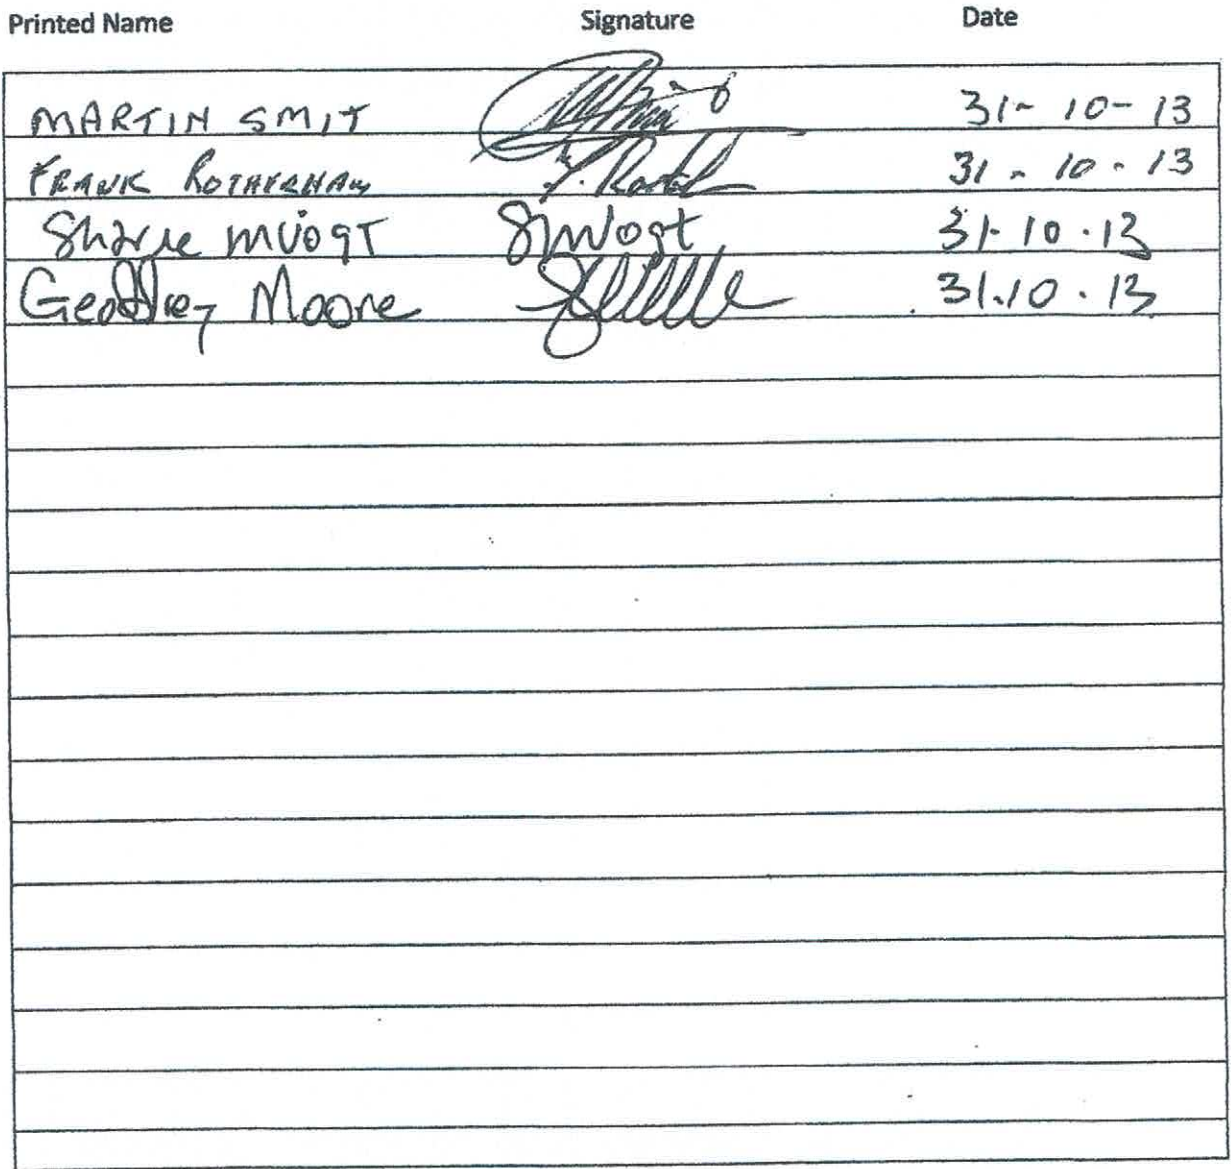 Printed Name Signature Date
MARTIN SMIT 31-10-13
FRANK ROTHERHAM 31-10-13
MVOGT SMVogt 31.10.13
Geoffrey Moore 31.10.13